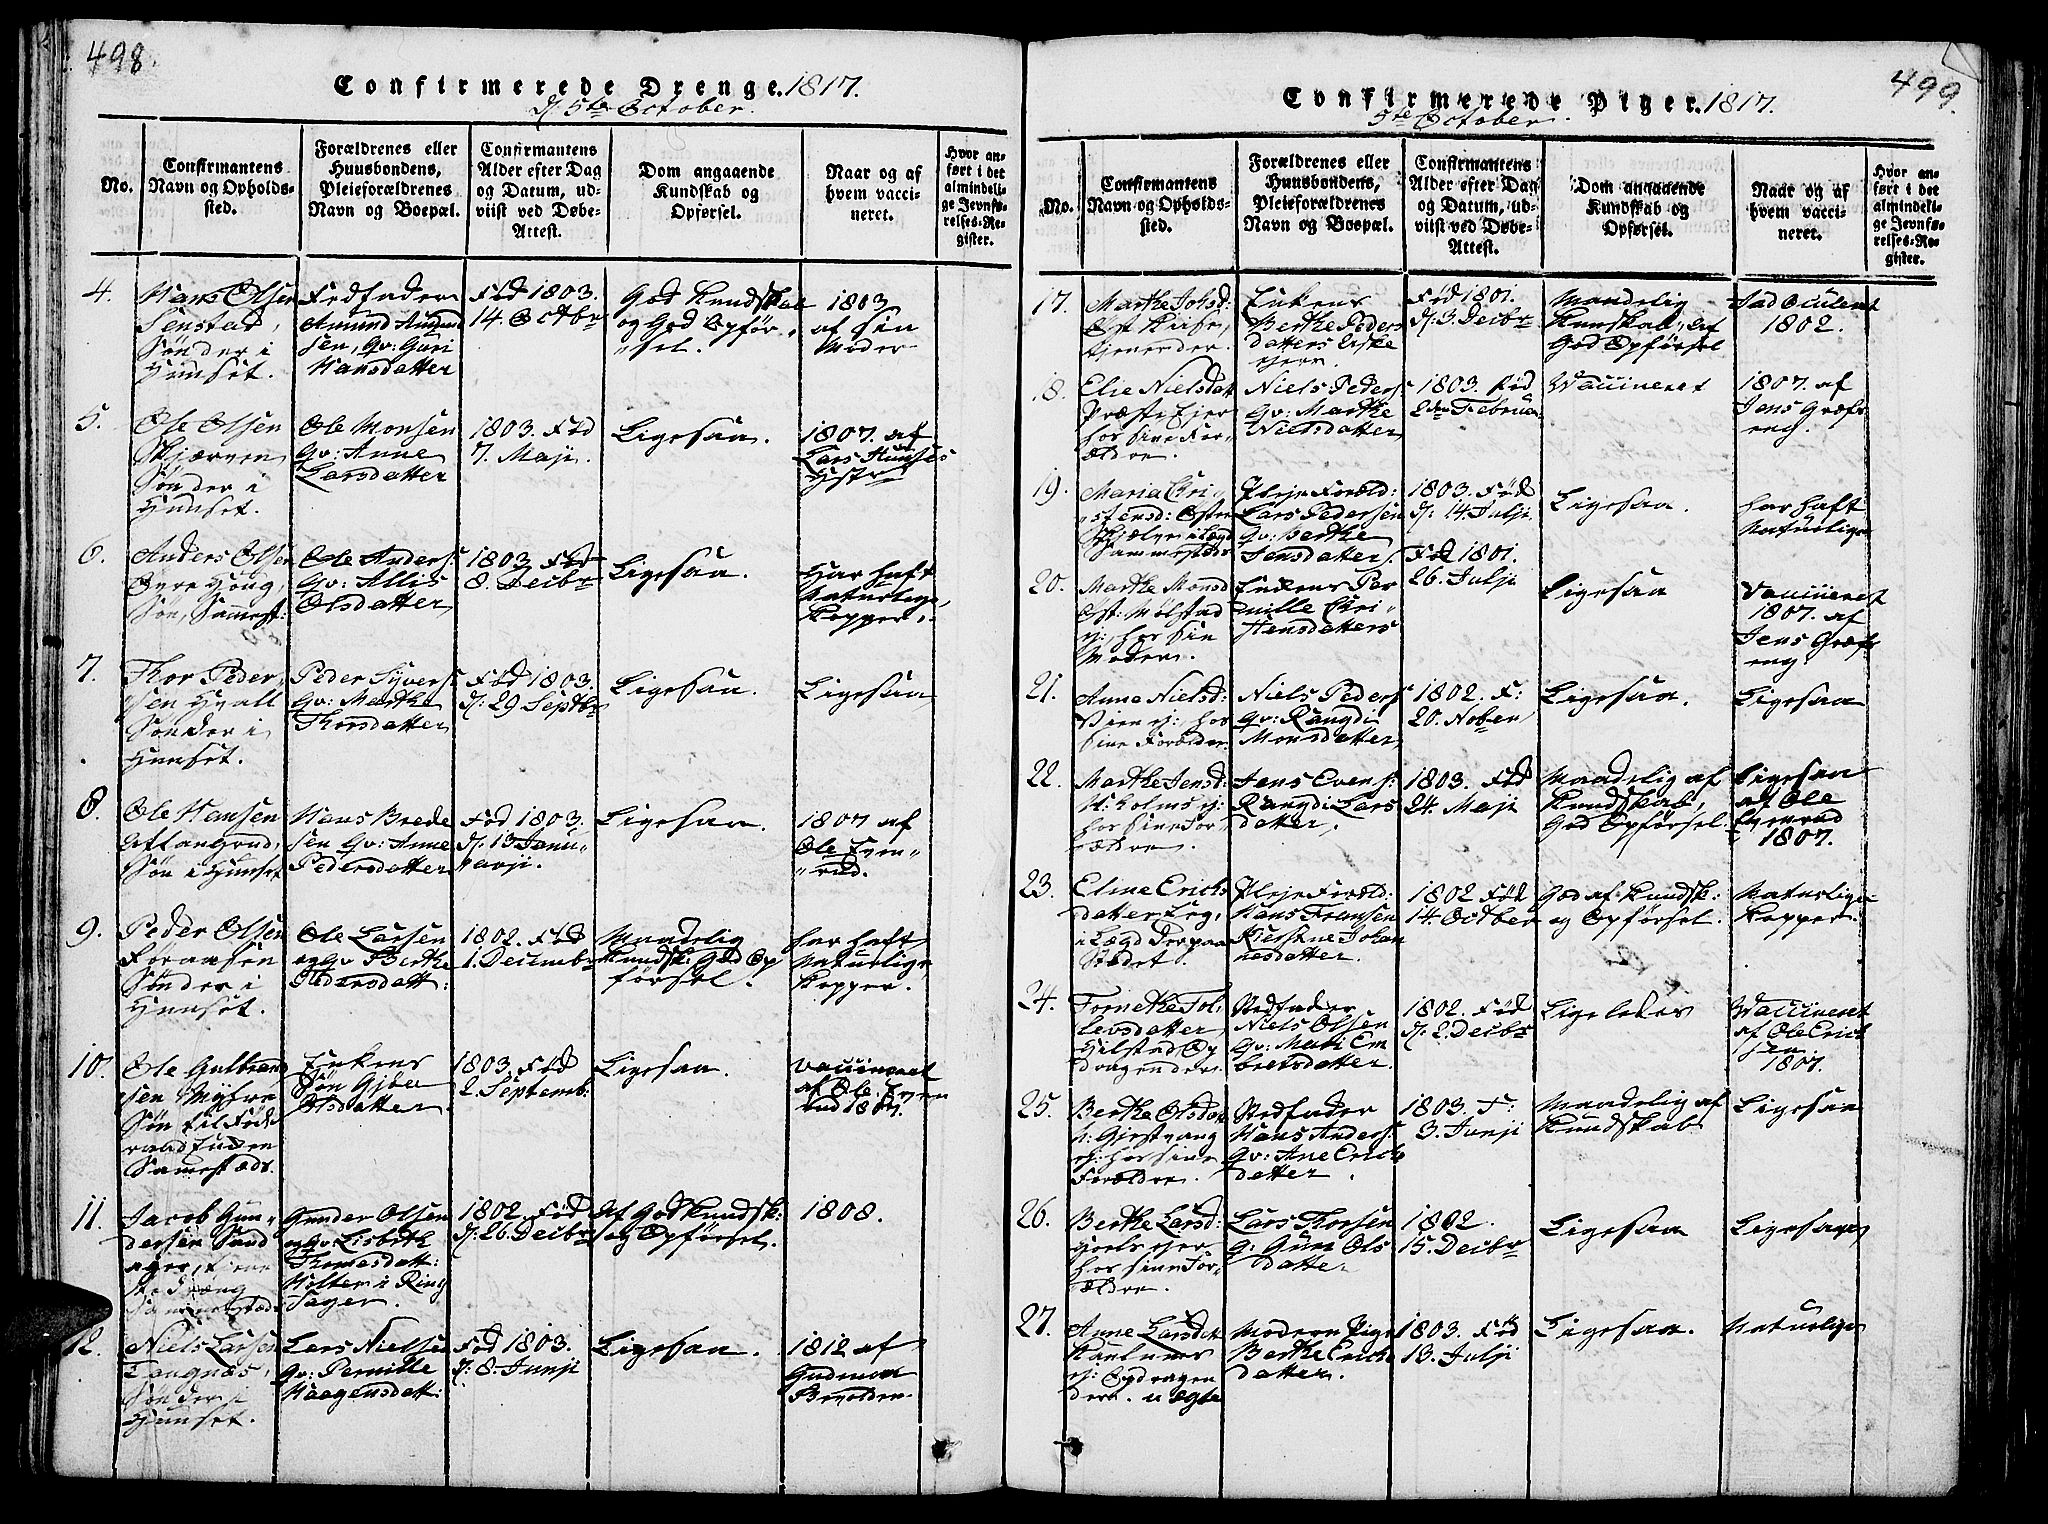 498.
Confirmerede Drenge. 1817.
d. 5te October.
No.
Confirmantens
Navn og Opholds-
sted.
Forældrenes eller
Huusbondens,
Pleieforældrenes
Navn og Boepæl.
Confirmantens
Alder efter Dag
og Datum, ud-
viist ved Døbe-
Attest.
Dom angaaende
Kundskab og
Opførsel.
Naar og af
hvem vacci-
neret.
Hvor an-
ført i det
almindeli-
ge Jevnfø-
relses-Re-
gister.
4.
Hans Olsen
Senstad,
Sønder i
Huuset.
Fedfader
Amund Amund
sen, Qv: Guri
Hansdatter
Fød 1803.
14. Octbr
God Kundskab
og God Opfør
sel.
1803
af sin
Moder
5.
Ole Olsen
Skjerven
Sønder i
Huuset.
Ole Monsen
Qv: Anne
Larsdatter
1803. Fød
7. Maji
Ligesaa.
1807. af
Lars
6.
Anders Olsen
Øvre Houg,
Søn, Samest:
Ole Anders:
Qv: Allis
Olsdatter
1803 Fød
8. Decbr
Ligesaa.
Har haft
Naturlige
Kopper.
7.
Thor Peder
sen Hvall
Sønder i
Huuset.
Peder Syvers:
Qv: Marthe
Thorsdatter
Fød 1803.
d. 29 Septbr
Ligesaa.
Ligesaa
8.
Ole Hansen
Søn i Huuset
Hans Brede
sen Qv: Anne
Pedersdatter
Fød 1803.
d. 13 Janu
varji.
Ligesaa.
1807 af
Ole Even
rud.
9.
Peder Olsen
Foraasen
Sønder i
Huuset.
Ole Larsen
og Qv Berthe
Pedersdatt:
1802. Fød
1. Decembr
Maadelig
Kundsk: God Op
førsel.
har haft
Naturlige
Kopper.
10.
Ole Gulbrand
sen
Søn til
Samestæds
Enkens
Søn Gjber
Olsdatter
1803. Fød
2. Septemb:
Ligesaa.
vaccineret
af Ole Even
rud 1807.
11.
Jacob Gun
dersen Sand
ager,
Gunder Olsen
og Qv Lisbeth
Thomesdatt:
Holter i Ring
sager.
1802. Fød
d. 26. Decbr
Af God Kundsk:
og Opførsel.
1808.
12.
Niels Larsen
Langnæs,
Sønder i
Huuset.
Lars Nielsen
Qv: Pernille
Haagensdatt:
Fød 1803.
d. 8. Junji
Ligesaa.
1812 af
Gudmon
499.
Confirmerede Piger. 1817.
5te October.
No.
Confirmantens
Navn og Opholds-
sted.
Forældrenes eller
Huusbondens,
Pleieforældrenes
Navn og Boepæl.
Confirmantens
Alder efter Dag
og Datum, ud-
viist ved Døbe-
Attest.
Dom angaaende
Kundskab og
Opførsel.
Naar og af
hvem vacci-
neret.
Hvor an-
ført i det
almindeli-
ge Jevnfø-
relses-Re-
gister.
17.
Marthe Johsd:
tjenende
Enkens
Berthe Peders
datters
Fød 1801.
d. 3. Decbr
Maadelig
Kunskab, af
God Opførsel
1802.
18.
Elie Nielsdatt
Præsteejer
hos sine For
ældre.
Niels Peders:
Qv: Marthe
Nielsdatter
1803. Fød
2den Februar
Vaccineret
1807. af
Jens Græfs
eng.
19.
Maria Cri
stensd: Østre
Pleje Foræld:
Lars Pedersen
Qv: Berthe
Jensdatter.
1803. Fød
d. 14. Julji
Ligesaa.
har haft
Naturlige
20.
Marthe Monsd
Øst: Mølstad
hos sin
Moder.
Enkens Per
nille Chri
stensdatters
Fød 1801.
26. Julji
Ligesaa
Vaccineret
1807. af
Jens Græfs
eng
21.
Anne Nielsd:
hos
sine Forælder
Niels Peders
Qv: Rangdi
Monsdatter
1802. F:
20. Nober
Ligesaa.
Ligesaa
22.
Marthe Jensd:
hos sine For
ældre.
Jens Evens:
Rangdi Lars
datter,
1803. Fød
24. Maji
Maadelig af
Kundskab,
God Opførsel
Ligesaa
af Ole
Evenrud
1807.
23.
Eline Erichs
datter
i Lægd der paa
Stædet.
Pleje Foræld:
Hans Fransen
Kierstine Johan
nesdatter.
1802 Fød
14. October
God af Kundsk:
og Opførsel.
Naturlige
Kopper.
24.
Tornethe Tol
levsdatter
Hilstad Op
dragende
Stedfader
Niels Olsen
Qv: Mari Em
bretsdatter.
1802. Fød
d. 2. Decbr
Ligeledes
Vaccineret
af Ole Erich
sen
1807.
25.
Berthe Olsdat
n: Gjestvang
hos sine
Forældre.
Stedfader
Hans Anders:
Qv: Ane Erichs
datter.
1803. F:
3. Junji
Maadelig af
Kundskab
Ligesaa
26.
Berthe Larsd:
hos sine For
ældre.
Lars Thorsen
Q: Guni Ols
datter
1802.
15. Decbr
Ligesaa
Ligesaa
27.
Anne Larsdatt
Opdragen
de. u ægte
Moderen Pige
Berthe Erichs
datter.
1803. Fød
13. Julji
Ligesaa.
Naturlige